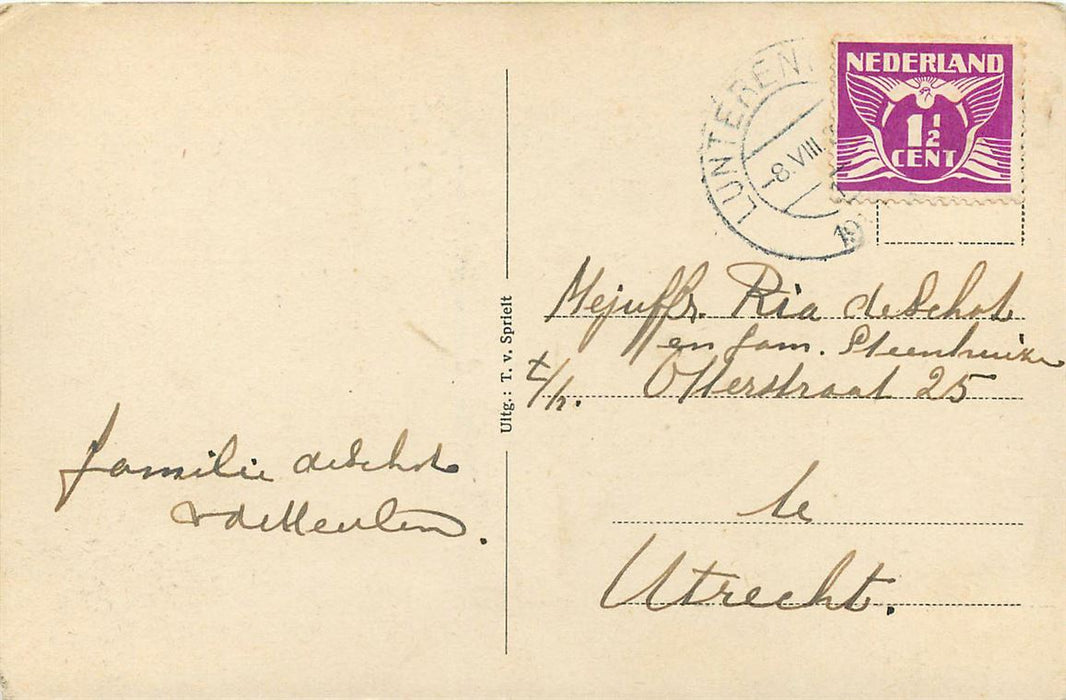 NEDERLAND
1½
CENT
LUNTEREN
-8.VIII
19
Mejuffr. Ria de Schot
en fam. Steenhuizen
t/h. Otterstraat 25
te
Utrecht.
Uitg.: T. v. Sprielt
familie de Schot
v de Meulen.